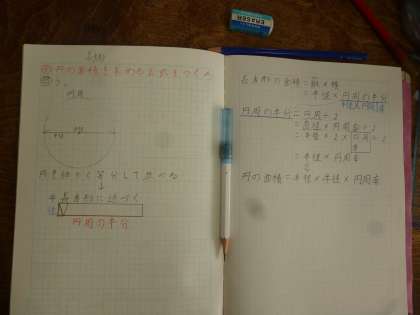 ERASER
円の面積を求める公式をつくろう。
円周
半径
円を細かく等分して並べる
↓
長方形に近づく
半径
円周の半分
長方形の面積=縦×横
=半径×円周の半分
半径×円周率
円周の半分=円周÷2
=直径×円周率÷2
=半径×2×円周率÷2
=半径×円周率
円の面積=半径×半径×円周率